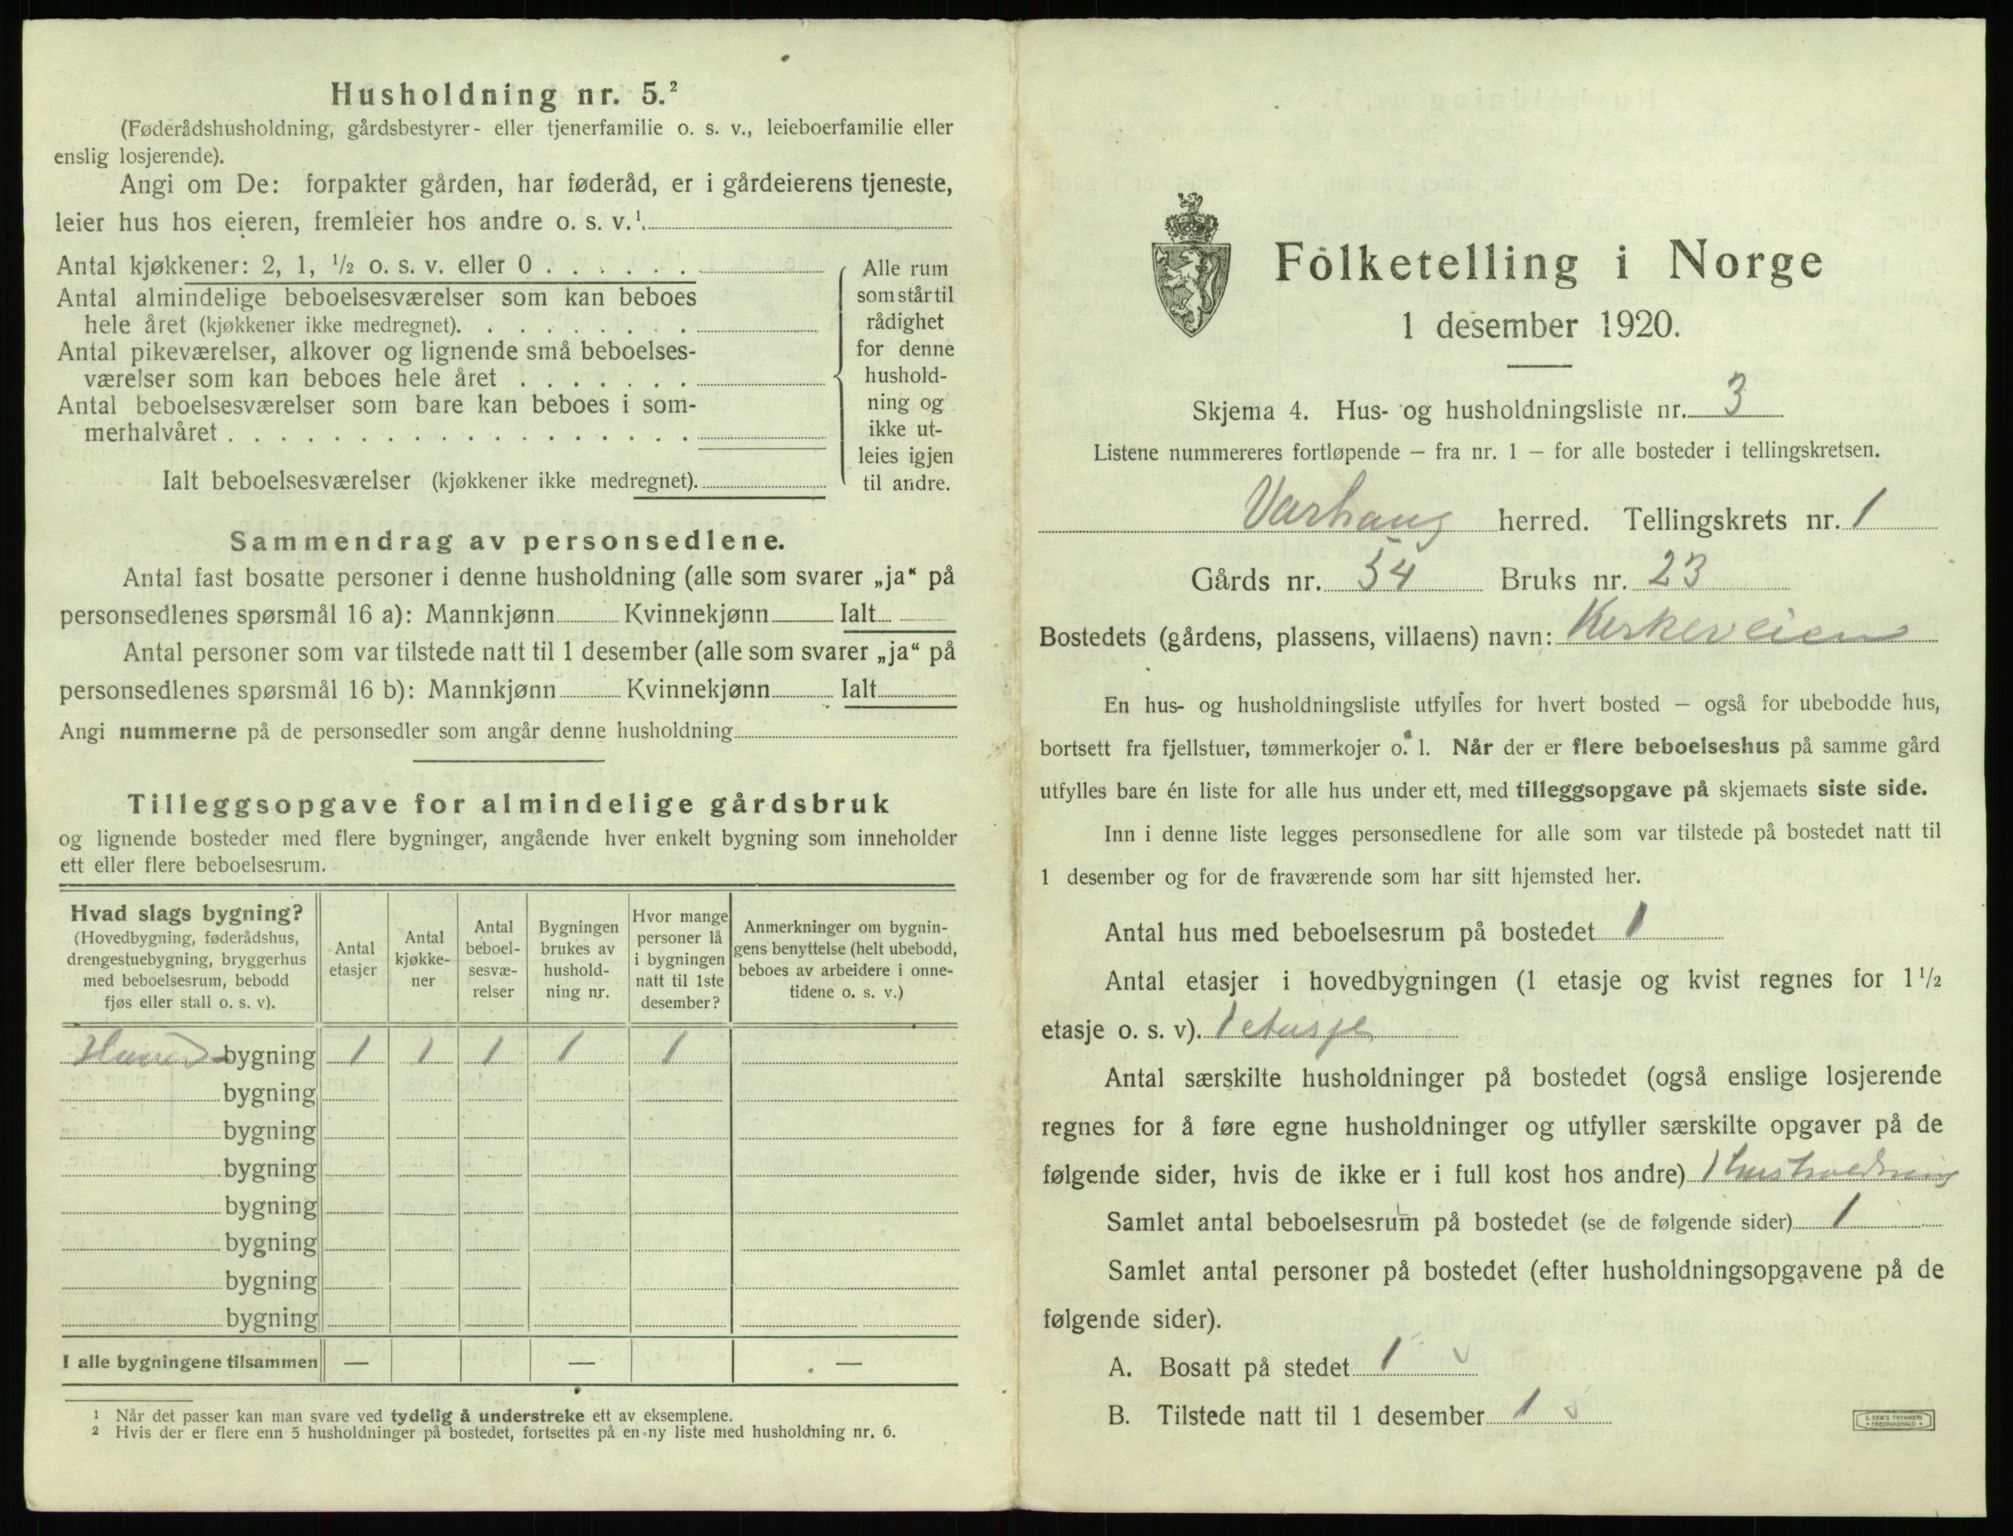 Husholdning nr. 5.²
(Føderådshusholdning, gårdsbestyrer- eller tjenerfamilie o. s. v., leieboerfamilie eller
enslig losjerende).
Angi om De: forpakter gården, har føderåd, er i gårdeierens tjeneste,
leier hus hos eieren, fremleier hos andre o. s. v.¹
Antal kjøkkener: 2, 1, ½ o. s. v. eller 0 . . . . . .
Antal almindelige beboelsesværelser som kan beboes
hele året (kjøkkener ikke medregnet). . . . . . . . .
Antal pikeværelser, alkover og lignende små beboelses-
værelser som kan beboes hele året . . . . . . .
Antal beboelsesværelser som bare kan beboes i som-
merhalvåret . . . . . . . . . . . . . . . . . .
Ialt beboelsesværelser (kjøkkener ikke medregnet).
Alle rum
som står til
rådighet
for denne
hushold-
ning og
ikke ut-
leies igjen
til andre.
Sammendrag av personsedlene.
Antal fast bosatte personer i denne husholdning (alle som svarer „ja“ på
personsedlenes spørsmål 16 a): Mannkjønn Kvinnekjønn Ialt
Antal personer som var tilstede natt til 1 desember (alle som svarer „ja“ på
personsedlenes spørsmål 16 b): Mannkjønn Kvinnekjønn Ialt
Angi nummerne på de personsedler som angår denne husholdning
Tilleggsopgave for almindelige gårdsbruk
og lignende bosteder med flere bygninger, angående hver enkelt bygning som inneholder
ett eller flere beboelsesrum.
Hvad slags bygning?
(Hovedbygning, føderådshus,
drengestuebygning, bryggerhus
med beboelsesrum, bebodd
fjøs eller stall o. s. v).
Antal
etasjer
Antal
kjøkke-
ner
Antal
beboel-
sesvæ-
relser
Bygningen
brukes av
hushold-
ning nr.
Hvor mange
personer lå
i bygningen
natt til 1ste
desember?
Anmerkninger om bygnin-
gens benyttelse (helt ubebodd,
beboes av arbeidere i onne-
tidene o. s. v.)
bygning 1 1 1 1 1
bygning
bygning
bygning
bygning
bygning
bygning
bygning
I alle bygningene tilsammen — — —
¹ Når det passer kan man svare ved tydelig å understreke ett av eksemplene.
² Hvis der er flere enn 5 husholdninger på bostedet, fortsettes på en ny liste med husholdning nr. 6.
Folketelling i Norge
1 desember 1920.
Skjema 4. Hus- og husholdningsliste nr. 3
Listene nummereres fortløpende – fra nr. 1 – for alle bosteder i tellingskretsen.
Varhaug herred. Tellingskrets nr. 1
Gårds nr. 54 Bruks nr. 23
Bostedets (gårdens, plassens, villaens) navn: Kirkeveien
En hus- og husholdningsliste utfylles for hvert bosted – også for ubebodde hus,
bortsett fra fjellstuer, tømmerkojer o. l. Når der er flere beboelseshus på samme gård
utfylles bare én liste for alle hus under ett, med tilleggsopgave på skjemaets siste side.
Inn i denne liste legges personsedlene for alle som var tilstede på bostedet natt til
1 desember og for de fraværende som har sitt hjemsted her.
Antal hus med beboelsesrum på bostedet 1
Antal etasjer i hovedbygningen (1 etasje og kvist regnes for 1½
etasje o. s. v). 1 etasje
Antal særskilte husholdninger på bostedet (også enslige losjerende
regnes for å føre egne husholdninger og utfyller særskilte opgaver på de
følgende sider, hvis de ikke er i full kost hos andre) 1 husholdning
Samlet antal beboelsesrum på bostedet (se de følgende sider) 1
Samlet antal personer på bostedet (efter husholdningsopgavene på de
følgende sider).
A. Bosatt på stedet 1
B. Tilstede natt til 1 desember 1
E. SEM'S TRYKKERI
FREDRIKSHALD